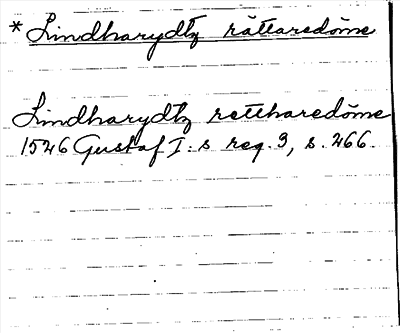 * Lindharydtz rättaredöme
Lindharydtz rettharedöme
1526 Gustaf I:s reg. 3, s. 266.